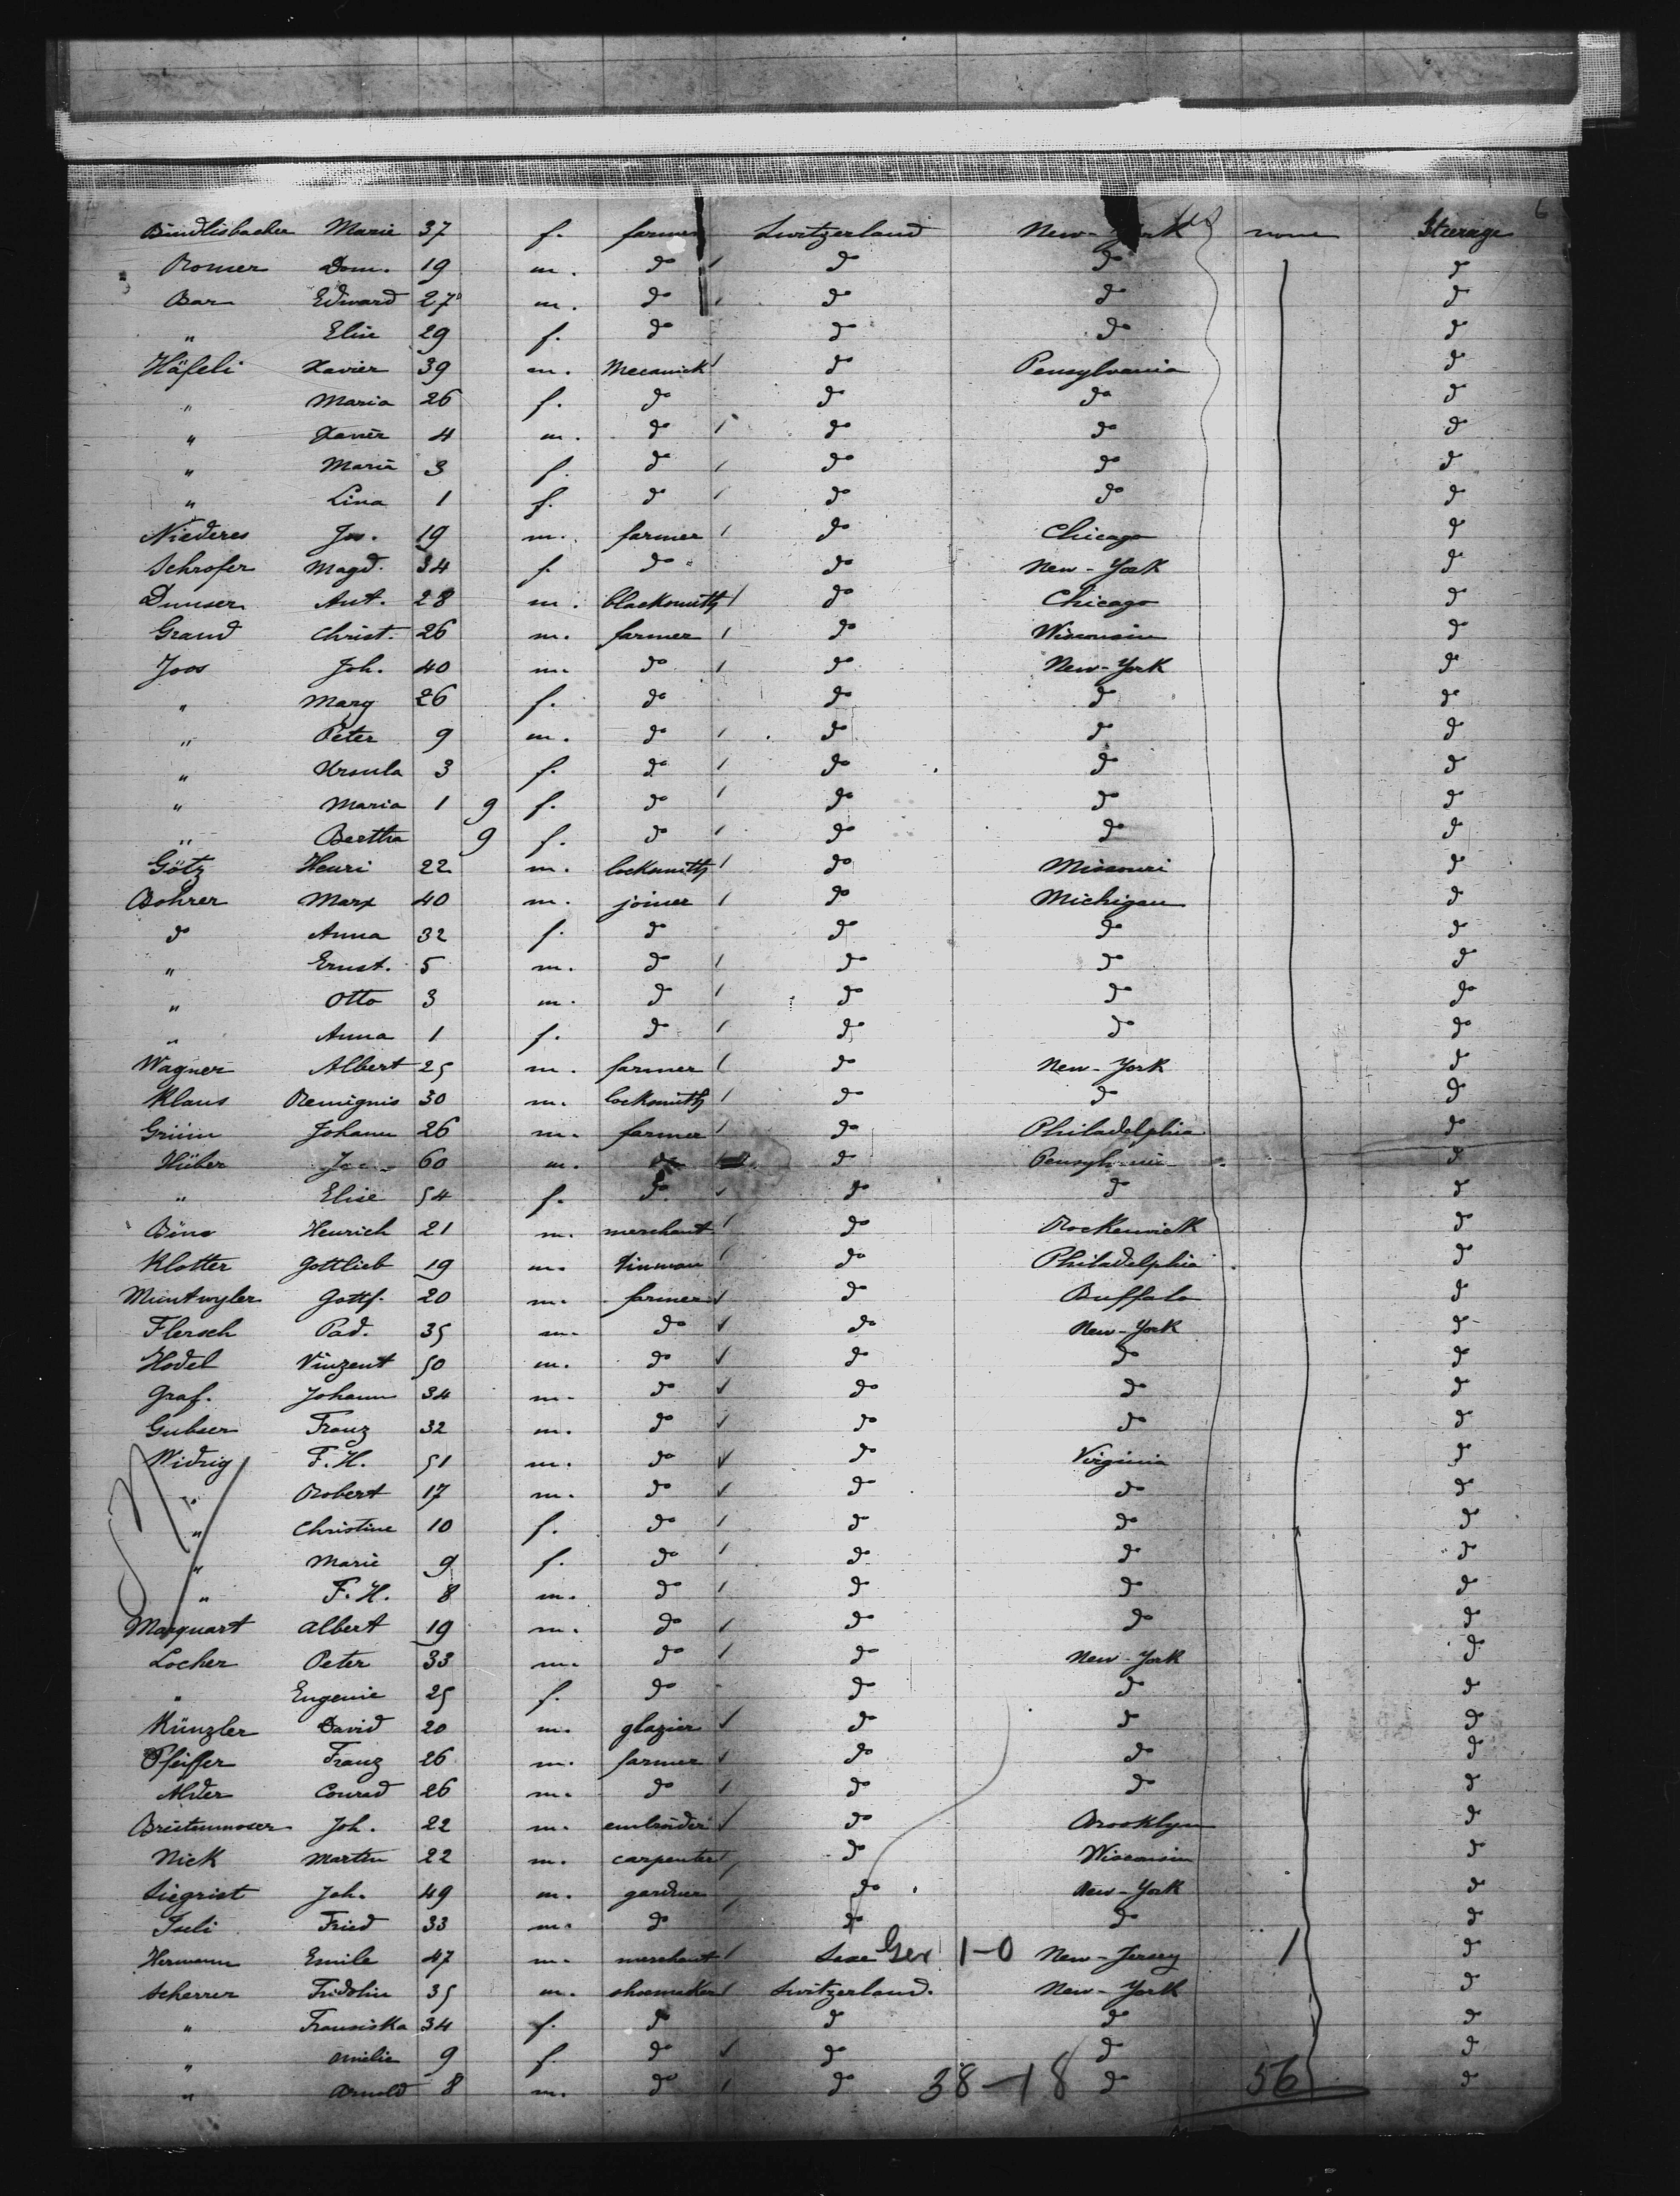 6
Bindlisbacher Marie 37 f. farmer Switzerland New-York none Steerage
Romer Dom. 19 m. do do do do
Bar Edward 27 m. do do do do
" Elise 29 f. do do do do
Häfeli Xavier 39 m. Mecanick do Pensylvania do
" Maria 26 f. do do do do
" Xavier 4 m. do do do do
" Maria 3 f. do do do do
" Lina 1 f. do do do do
Niederes Jos. 19 m. farmer do Chicago do
Schrofer Magd. 34 f. do do New-York do
Dunser Ant. 28 m. blacksmith do Chicago do
Grand Christ. 26 m. farmer do Wisconsin do
Joos Joh. 40 m. do do New-York do
" Marg 26 f. do do do do
" Peter 9 m. do do do do
" Ursula 3 f. do do do do
" Maria 1 9 f. do do do do
" Bertha 9 f. do do do do
Götz Henri 22 m. locksmith do Missouri do
Bohrer Marx 40 m. joiner do Michigan do
do Anna 32 f. do do do do
" Ernst. 5 m. do do do do
" Otto 3 m. do do do do
" Anna 1 f. do do do do
Wagner Albert 25 m. farmer do New-York do
Klaus Remignis 30 m. locksmith do do do
Grüm Johann 26 m. farmer do Philadelphia do
Hüber 60 m. do do Pensylvania do
" Elise 54 f. do do do do
Heinrich 21 m. merchant do Rockenwick do
Klotter Gottlieb 19 m. tinman do Philadelphia do
Muntwyler Gottf. 20 m. farmer do Buffalo do
Flersch Pad. 35 m. do do New-York do
Hodel Vinzent 50 m. do do do do
Graf. Johann 34 m. do do do do
Gubser Franz 32 m. do do do do
Widrig F. H. 51 m. do do Virginia do
" Robert 17 m. do do do do
" Christine 10 f. do do do do
" Marie 9 f. do do do do
" F. H. 8 m. do do do do
Marquart Albert 19 m. do do do do
Locher Peter 33 m. do do New-York do
" Eugenie 25 f. do do do do
Künzler David 20 m. glazier do do do
Pfeiffer Franz 26 m. farmer do do do
Alder Conrad 26 m. do do do do
Breitenmoser Joh. 22 m. do Brooklyn do
Nick Martin 22 m. carpenter do Wisconsin do
Siegrist Joh. 49 m. gardner do New-York do
Juli Fried 33 m. do do do do
Hermann Emile 47 m. merchant Saxe Ger 1-0 New-Jersey 1 do
Scherrer Fridolin 35 m. shoemaker Switzerland. New-York do
" Fransiska 34 f. do do do do
" Amelie 9 f. do do do do
" Arnold 8 m. do do 38-18 do 56 do